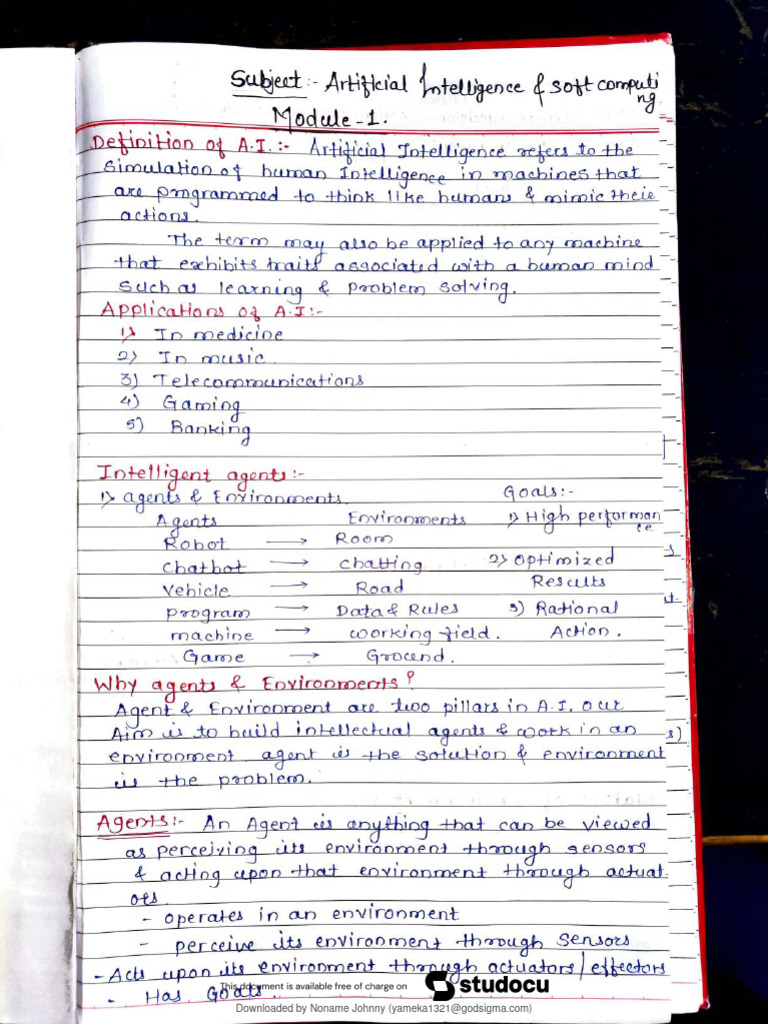 Subject :- Artificial Intelligence & soft computi
ng.
Module - 1.
Definition of A.I. :- Artificial Intelligence refers to the
simulation of human Intelligence in machines that
are programmed to think like humans & mimic their
actions.
The term may also be applied to any machine
that exhibits traits associated with a human mind
such as learning & problem solving.
Applications of A.I :-
1) In medicine
2) In music
3) Telecommunications
4) Gaming
5) Banking
Intelligent agents :-
1) agents & Environments. Goals :-
Agents Environments 1) High performan
ce
Robot → Room
Chatbot → chatting 2) optimized
Vehicle → Road Results
program → Data & Rules 3) Rational
machine → working field. Action.
Game → Ground.
Why agents & Environments?
Agent & Environment are two pillars in A.I. our
Aim is to build intellectual agents & work in an
environment agent is the solution & environment
is the problem.
Agents :- An Agent is anything that can be viewed
as perceiving its environment through sensors
& acting upon that environment through actuat-
ors
- operates in an environment
- perceive its environment through sensors
- Acts upon its environment through actuators / effectors
- Has Goals.
This document is available free of charge on studocu
Downloaded by Noname Johnny (yameka1321@godsigma.com)